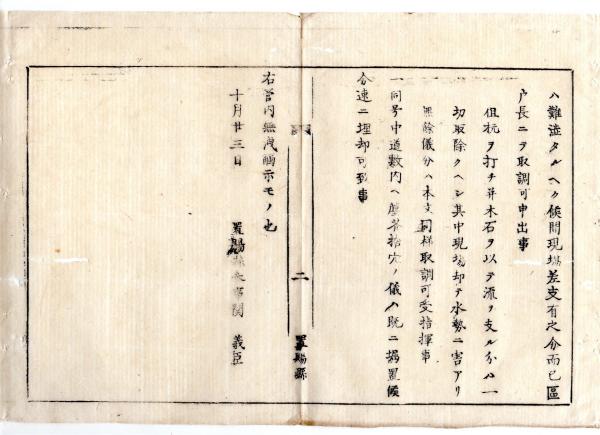 ハ難渋タルヘク候間現場差支有之分而已區
戸長ニテ取調可申出事
但杭ヲ打チ并木石ヲ以テ流ヲ支ル分ハ一
切取除クヘシ其中現場却テ水勢ニ害アリ
無餘儀分ハ本文同様取調可受指揮事
一同号中道敷内ヘ 塵芥捨穴ノ儀ハ既ニ掘置候
分速ニ埋却可致事
右管内無洩触示モノ也
十月廿三日 置賜縣参事関 義臣
二
置賜縣